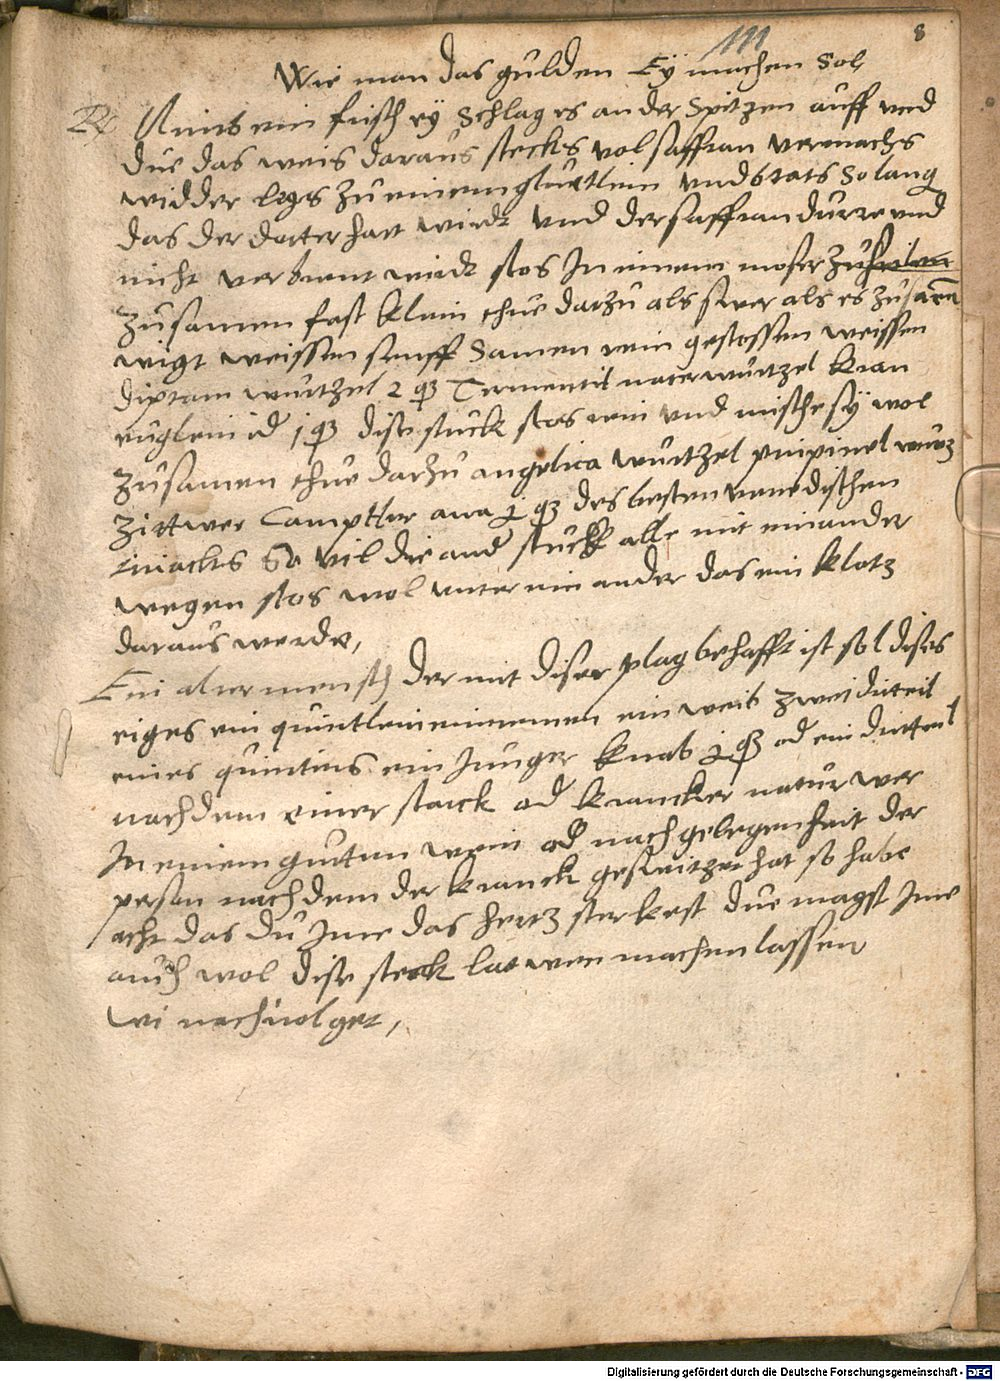 8
111
Wie man das gulden Ey machen Sol
Rx Nimb ein frisch ey Schlag es an der Spitzen auff und
due das weis daraus stecks vol saffran vermachs
widder legs zu einem gluetlein und brats So lang
das der dotter hart wirdt und der saffran durre und
nicht verbrent wirdt stos In einem moser zu
zusamen fast klein thue darzu als swer als es zusamen
wigt weissen senff Samen rein gestossen weissen
diptam wurtzel 2 Tormentil naterwurtzel kran
euglein id 1 dise stuck stos rein und mische sy wol
zusamen thue darzu angelica wurtzel pimpinel wurz
Zittwer Campffer ana 2 des besten venedischen
tiriacks So vil die and stuck alle mit einander
wegen stos wol unter ein ander das ein klotz
daraus werde,
Ein alter mensch der mit diser plag behafft ist sol dises
eiges ein quintlein einnemen ein weib zwei driteil
eines quintins ein Junger knab 2 od ein dritteil
nachdem einer starck od krancker natur wer
In einem gutten wein od nach gelegenheit der
person nach dem der kranck geswitzet hat so habe
acht das du Ime das hertz sterkest due magst Ime
auch wol dise sterk latwen machen lassen
wi nachvolget,
Digitalisierung gefördert durch die Deutsche Forschungsgemeinschaft - DFG